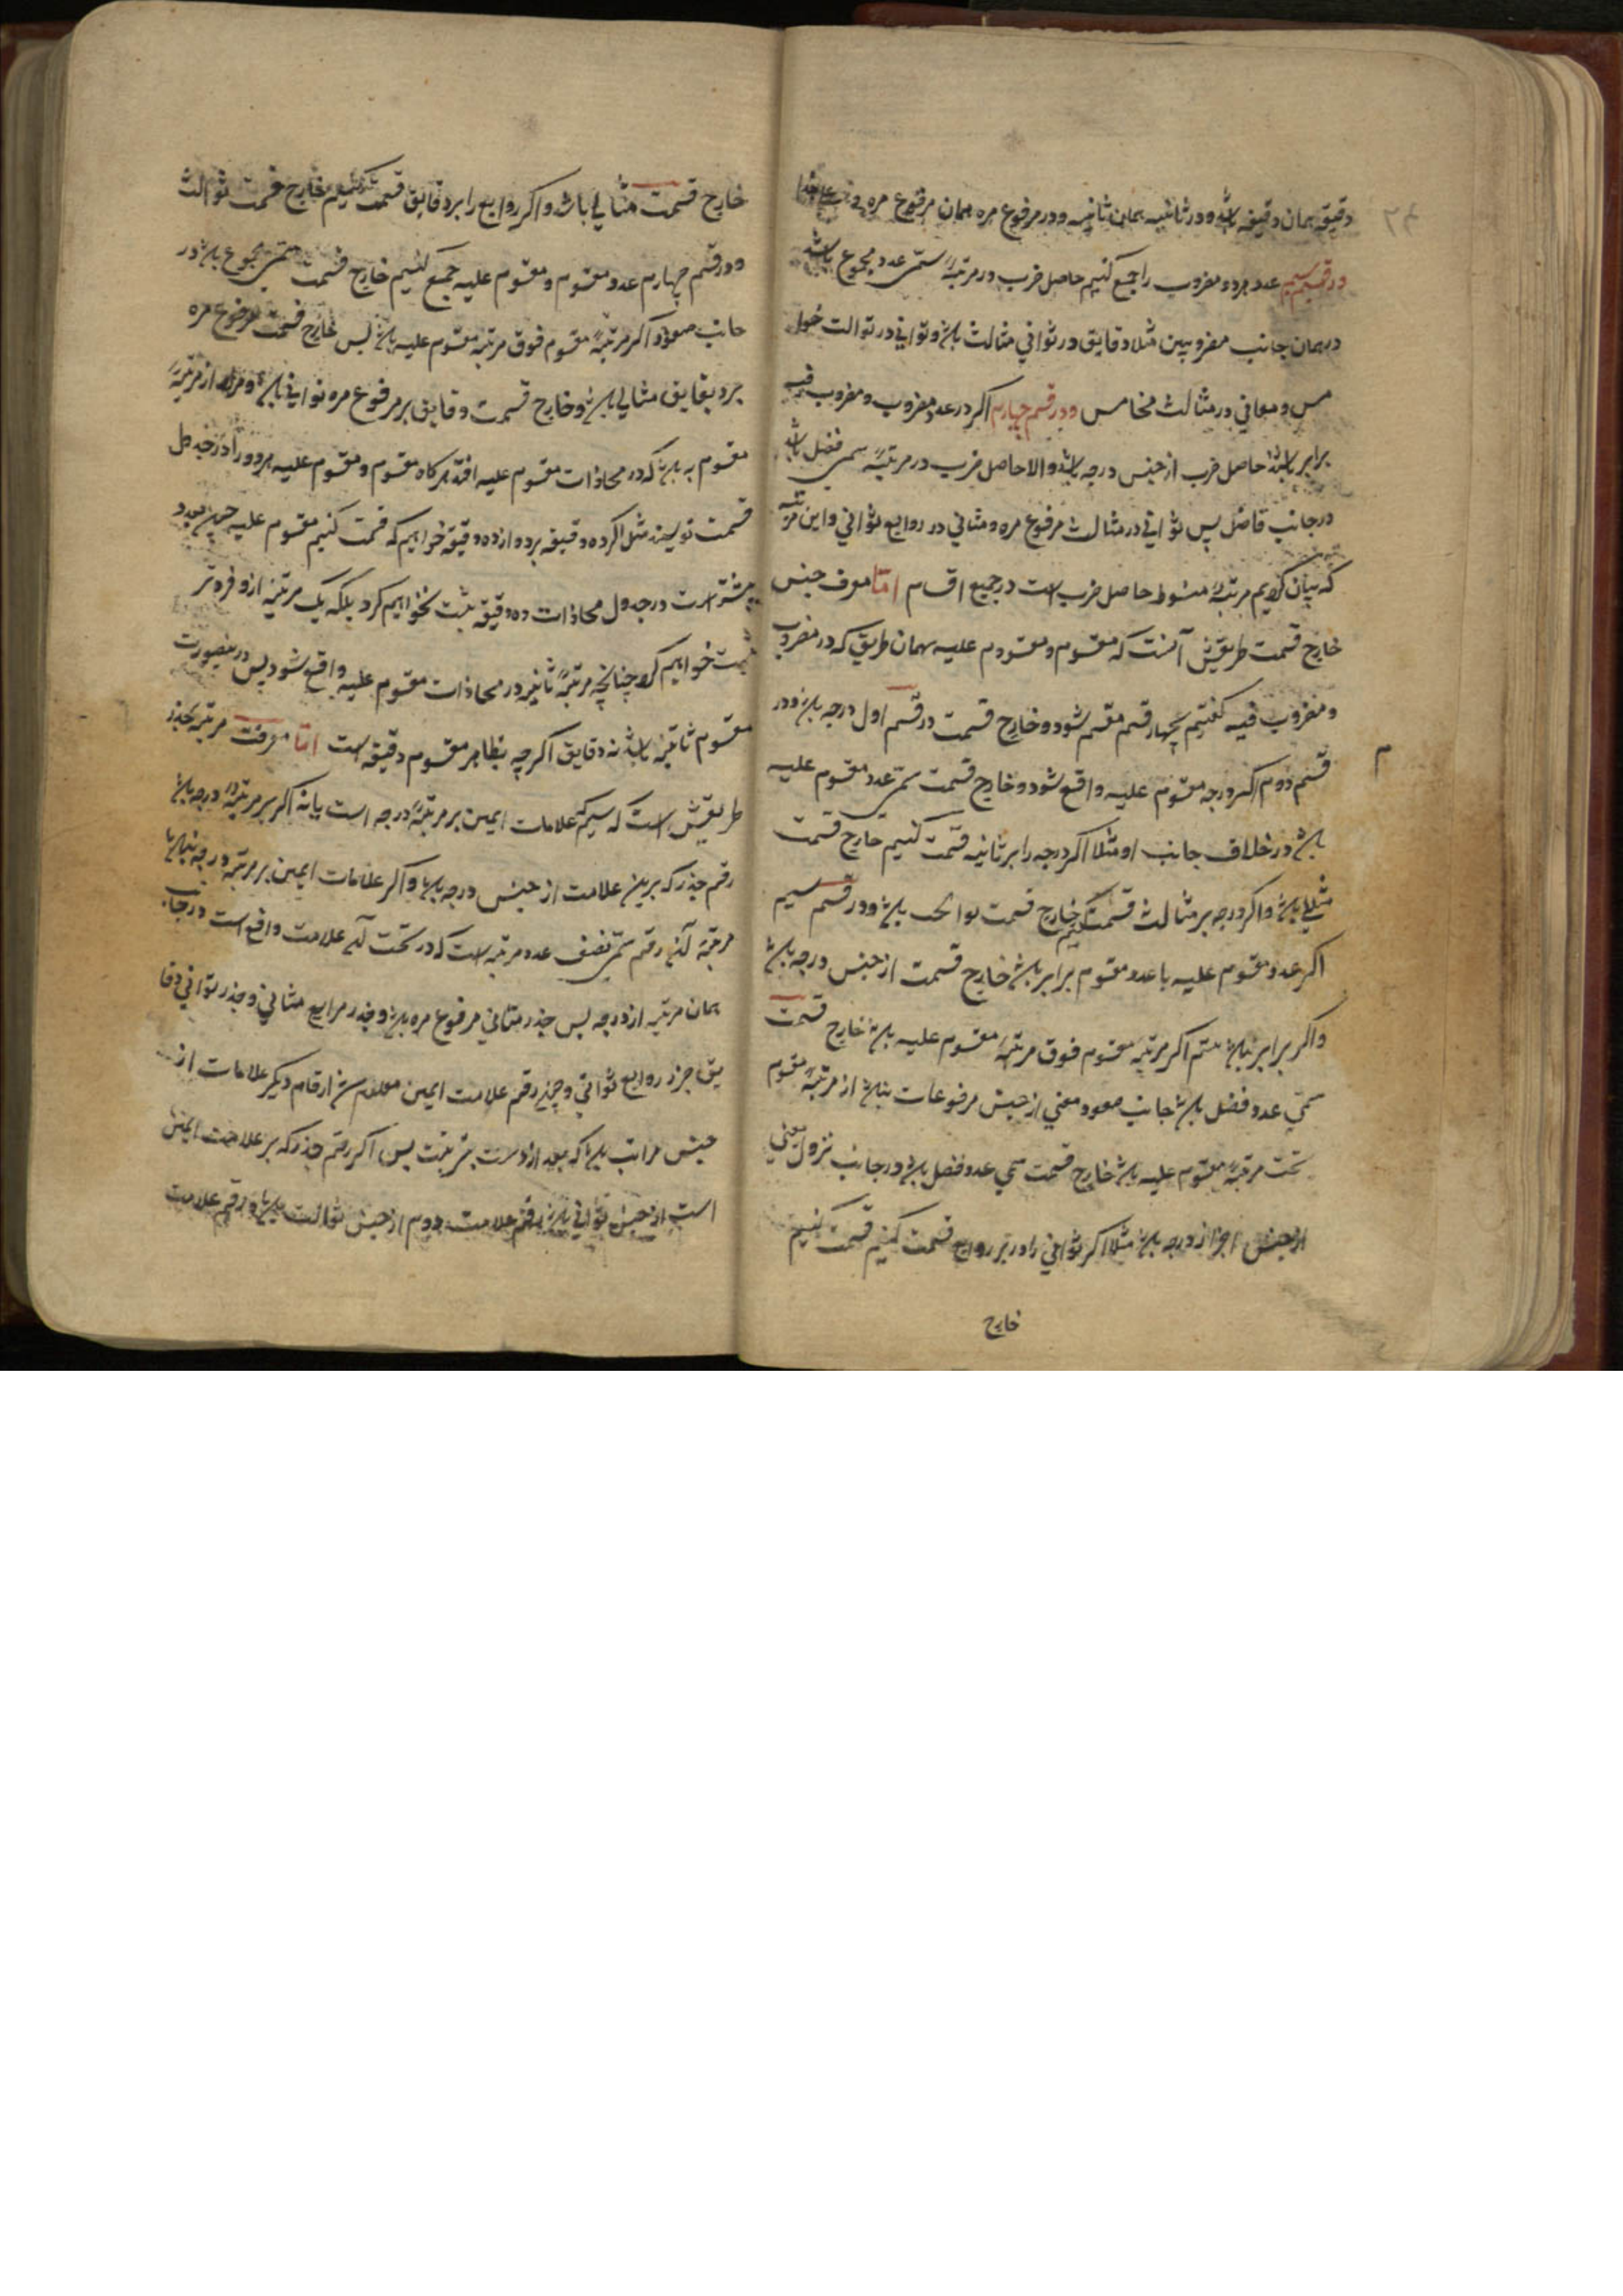 دقیقه همان دقیقه باشد و در ثانیه همان ثانیه و در مرفوع مره همان مرفوع مره
در قسم سیم عدد هر دو مضروب را جمع کنیم حاصل ضرب در مرتبهٔ سمی عدد مجموع باشد
در همان جانب مضروبین مثلا دقایق در ثوانی مثالث باشد و ثوانی در ثوالث خوا
مس و مثانی در مثالث مخامس و در قسم چهارم اگر در عدد مضروب و مضروب فیه
برابر باشند حاصل ضرب از جنس درجه باشد والا حاصل ضرب در مرتبهٔ سمی فضل باشد
در جانب فاضل پس ثوانی در مثالث مرفوع مره و مثانی در روابع ثوانی و این مرتبه
که بیان کردیم مرتبهٔ حاصل ضرب است در جمیع اقسام اما معرف جنس
خارج قسمت طریقش آنست که مقسوم و مقسوم علیه بهمان طریق که در مضروب
و مضروب فیه گفتیم بچهار قسم مقسم شود و خارج قسمت در قسم اول درجه باشد و در
قسم دوم اگر درجه مقسوم علیه واقع شود و خارج قسمت سمی عدد مقسوم علیه
م
باشد در خلاف جانب او مثلا اگر درجه را بر ثانیه قسمت کنیم خارج قسمت
باشد و اگر درجه بر مثالث قسمت کنیم خارج قسمت باشد و در قسم سیم
اگر عدد مقسوم علیه با عدد مقسوم برابر باشد خارج قسمت از جنس درجه باشد
و اگر برابر نباشد اگر مرتبه مقسوم فوق مرتبهٔ مقسوم علیه باشد خارج قسمت
سمی عدد فضل باشد جانب صعود یعنی از جنس مرفوعات باشد از مرتبهٔ مقسوم
تحت مرتبهٔ مقسوم علیه باشد خارج قسمت سمی عدد فضل باشد در جانب نزول یعنی
از جنس اجزا درجه باشد مثلا اگر ثوانی را بر روابع قسمت کنیم قسمت کنیم
خارج
خارج قسمت مثانی باشد و اگر روابع را بر دقایق قسمت کنیم خارج قسمت ثوالث
و در قسم چهارم عدد مقسوم و مقسوم علیه جمع کنیم خارج قسمت سمی مجموع باشد در
جانب صعود اگر مرتبهٔ مقسوم فوق مرتبه مقسوم علیه باشد پس خارج قسمت مرفوع مره
بر دقایق مثانی باشد و خارج قسمت دقایق بر مرفوع مره ثوانی باشد و مراد از مرتبهٔ
مقسوم به باشد که در محاذات مقسوم علیه افتد هرگاه مقسوم و مقسوم علیه هر دو را در جدول
قسمت نویسند مثلا اگر ده دقیقه بر دوازده دقیقه خواهیم که قسمت کنیم مقسوم علیه چون بعدد
بیشتر است در جدول محاذات ده دقیقه ثبت نخواهیم کرد بلکه یک مرتبه ازو فروتر
ثبت خواهیم کرد چنانچه مرتبهٔ ثانیه در محاذات مقسوم علیه واقع شود پس درینصورت
مقسوم ثانیه باشد نه دقایق اگرچه بظاهر مقسوم دقیقه است اما معرفت مرتبه جذر
طریقش است که علامات ایمین بر مرتبهٔ درجه است یا نه اگر بر مرتبهٔ درجه باشد
رقم جذر که برین علامت از جنس درجه باشد و اگر علامات ایمین بر مرتبه درجه نباشد
مرتبه آن رقم سمی نصف عدد مرتبه است که در تحت آن علامت واقع است در جانب
همان مرتبه از درجه پس جذر مثانی مرفوع مره باشد و جذر مرابع مثانی و جذر ثوانی دقا
یق جزر روابع ثوانی و چون رقم علامت ایمین معلوم شد ارقام دیگر علامات از
جنس مراتب باشد که بعد ازوست بترتیب پس اگر رقم جذر که بر علامت ایمن
است از جنس ثوانی باشد رقم علامت دوم از جنس ثوالث باشد و رقم علامت